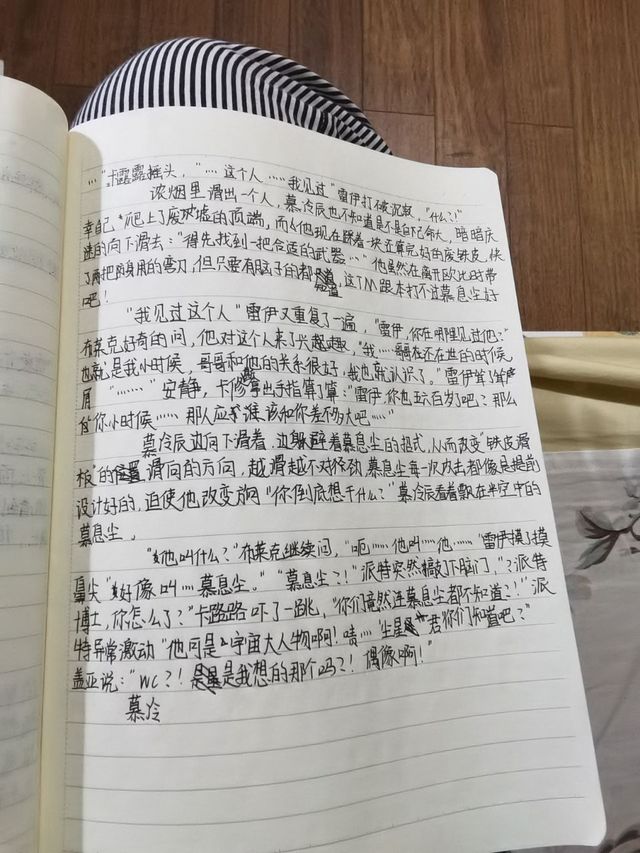 …"卡露露摇头，"…这个人……我见过"雷伊打破沉寂，"什么？！"
浓烟里滑出一个人，慕冷辰也不知道是不是自己命大，暗暗庆
幸自己爬上了废墟的顶端，而他现在踩着一块还算完好的废铁皮，快
速的向下滑去："得先找到一把合适的武器…"他虽然在离开欧比时带
了两把防身用的弯刀，但只要有脑子的都知道，这TM跟本打不过慕息尘好
吧！
"我见过这个人"雷伊又重复了一遍，"雷伊，你在哪里见过他？"
布莱克好奇的问，他对这个人来了兴趣，"我……哥哥还在世的时候，
也就是我小时候，哥哥和他的关系很好，我也就认识了。"雷伊耸了耸
肩"………"安静，卡修斯拿出手指算了算："雷伊，你也五六百岁了吧？那么
你小时候……那人应该和你差不多大吧……"
慕冷辰边向下滑着，边躲避着慕息尘的招式，从而改变"铁皮滑
板"的滑向的方向，越滑越不对劲，慕息尘每一次攻击都像是提前
设计好的，迫使他改变方向"你到底想干什么？"慕冷辰看着飘在半空中的
慕息尘。
"他叫什么？"布莱克继续问，"呃……他叫…他……"雷伊摸了摸
鼻尖"好像叫…慕息尘。""慕息尘？！"派特突然敲了下脑门，"？派特
博士，你怎么了？"卡璐璐吓了一跳，"你们竟然连慕息尘都不知道？！"派
特异常激动"他可是宇宙大人物啊！啧…'尘星君'你们知道吧？"
盖亚说："WC？！是我想的那个吗？！偶像啊！"
慕冷